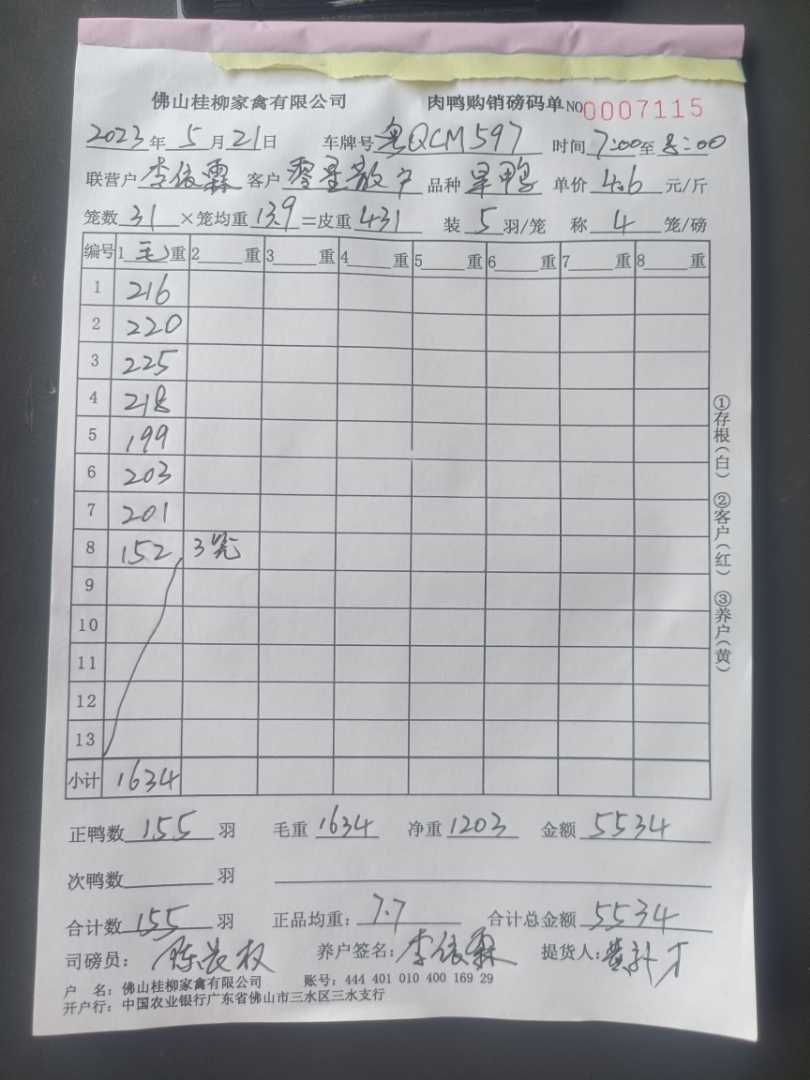 佛山桂柳家禽有限公司 肉鸭购销磅码单 NO 0007115
2023年5月21日 车牌号 粤QCM597 时间 7:00至8:00
联营户 李依霖 客户 零星散户 品种 旱鸭 单价 4.6 元/斤
笼数 31 ×笼均重 13.9 =皮重 431 装 5 羽/笼 称 4 笼/磅
编号 1 毛 重 2 重 3 重 4 重 5 重 6 重 7 重 8 重
1 216
2 220
3 225
4 218
5 199
6 203
7 201
8 152 3笼
9
10
11
12
13
小计 1634
正鸭数 155 羽 毛重 1634 净重 1203 金额 5534
次鸭数 羽
合计数 155 羽 正品均重: 7.7 合计总金额 5534
司磅员: 养户签名: 李依霖 提货人:
户 名: 佛山桂柳家禽有限公司 账号: 444 401 010 400 169 29
开户行: 中国农业银行广东省佛山市三水区三水支行
①存根(白) ②客户(红) ③养户(黄)